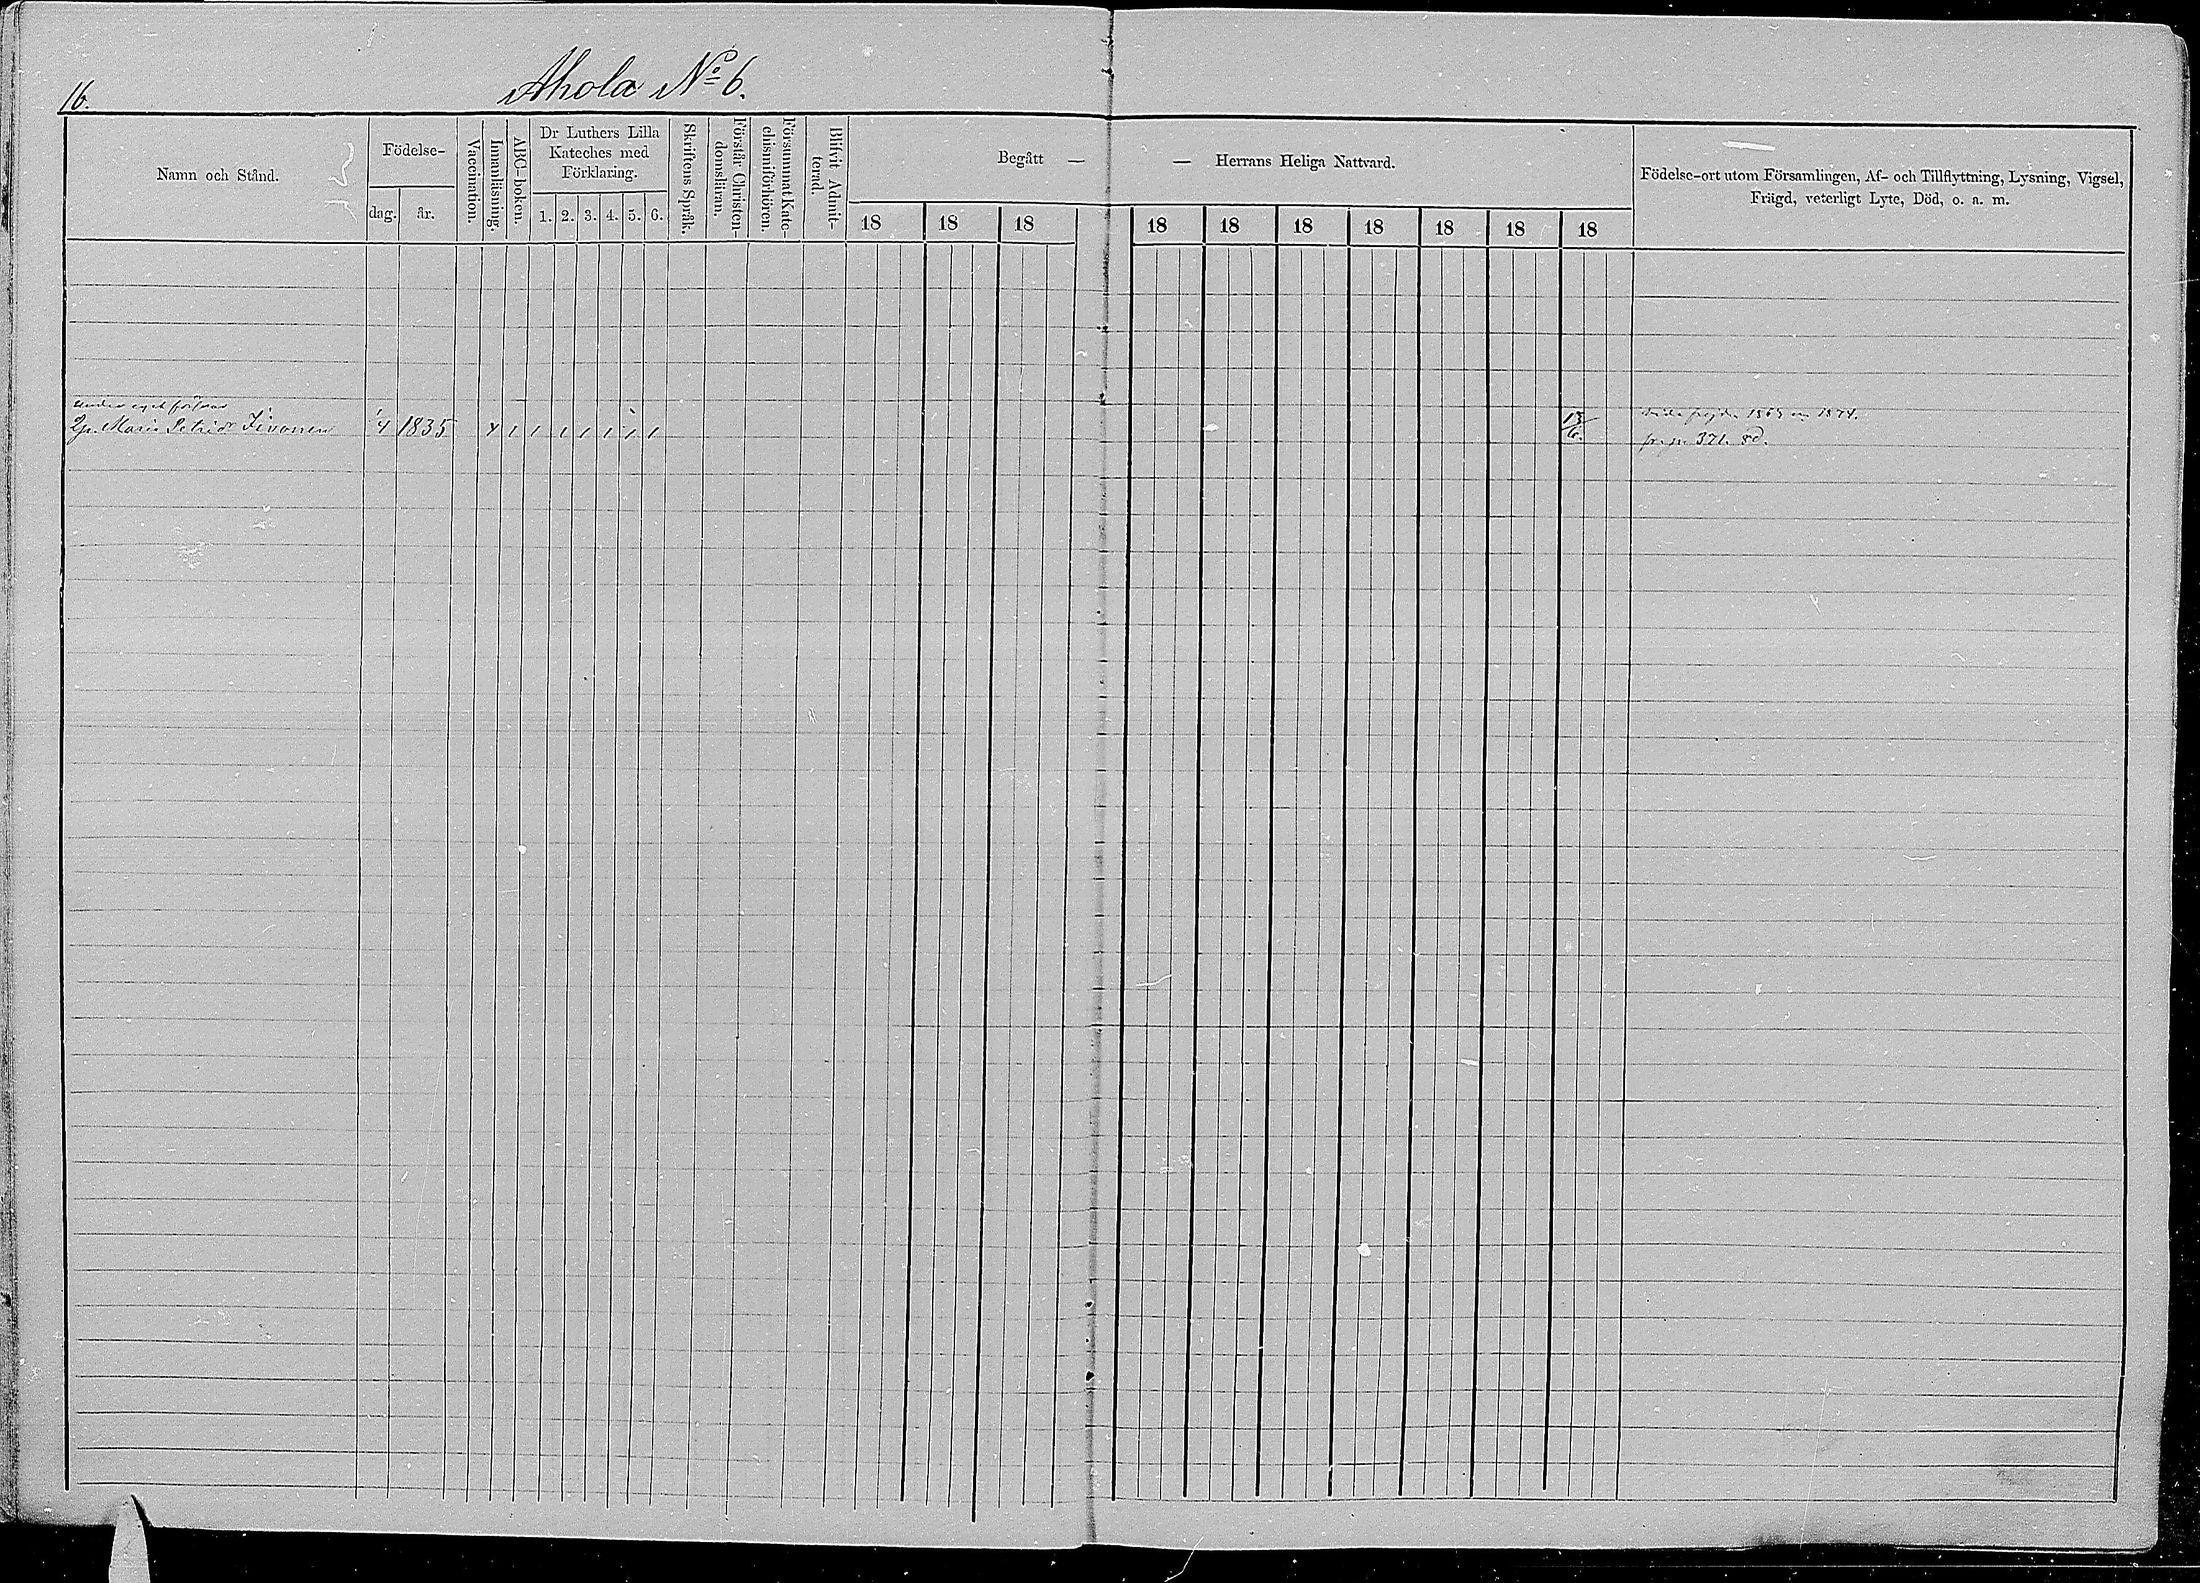 16.
Ahola No 6.
Namn och Stånd.
Födelse-
dag.
år.
Vaccination.
Innanläsning.
ABC-boken.
Dr Luthers Lilla
Kateches med
Förklaring.
1. 2. 3. 4. 5. 6.
Skriftens Språk.
Förstår Christen-
domsläran.
Försummat Kate-
chismiförhören.
Blifvit Admit-
terad.
Begått —
— Herrans Heliga Nattvard.
18 18 18 18 18 18 18 18 18 18
Födelse-ort utom Församlingen, Af- och Tillflyttning, Lysning, Vigsel,
Frägd, veterligt Lyte, Död, o. a. m.
under eget försvar
Maria Petrid:r 4 1835 13/6. 1874.
371.